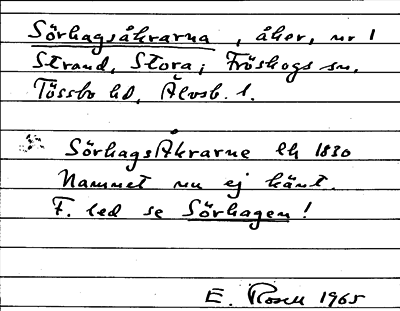 Sörhagsåkrarna, åker, nr 1
Strand, Stora; Fröskogs sn,
Tössbo hd, Älvsb. l.
SörhagsÅkrarne lh 1830
Namnet nu ej känt.
F. led se Sörhagen!
E. Rosell 1965